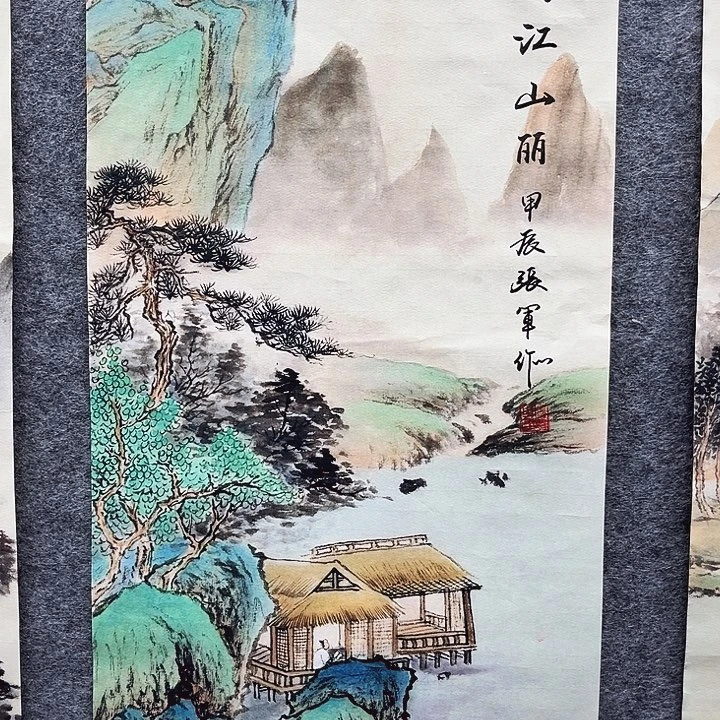 江山丽
甲辰張軍作